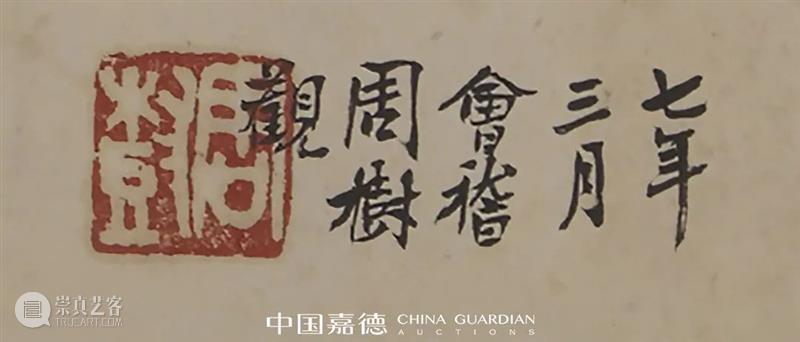 七年
三月
會稽
周樹
觀
周樹
崇真艺客
TRUEART.COM
中国嘉德 CHINA GUARDIAN
AUCTIONS